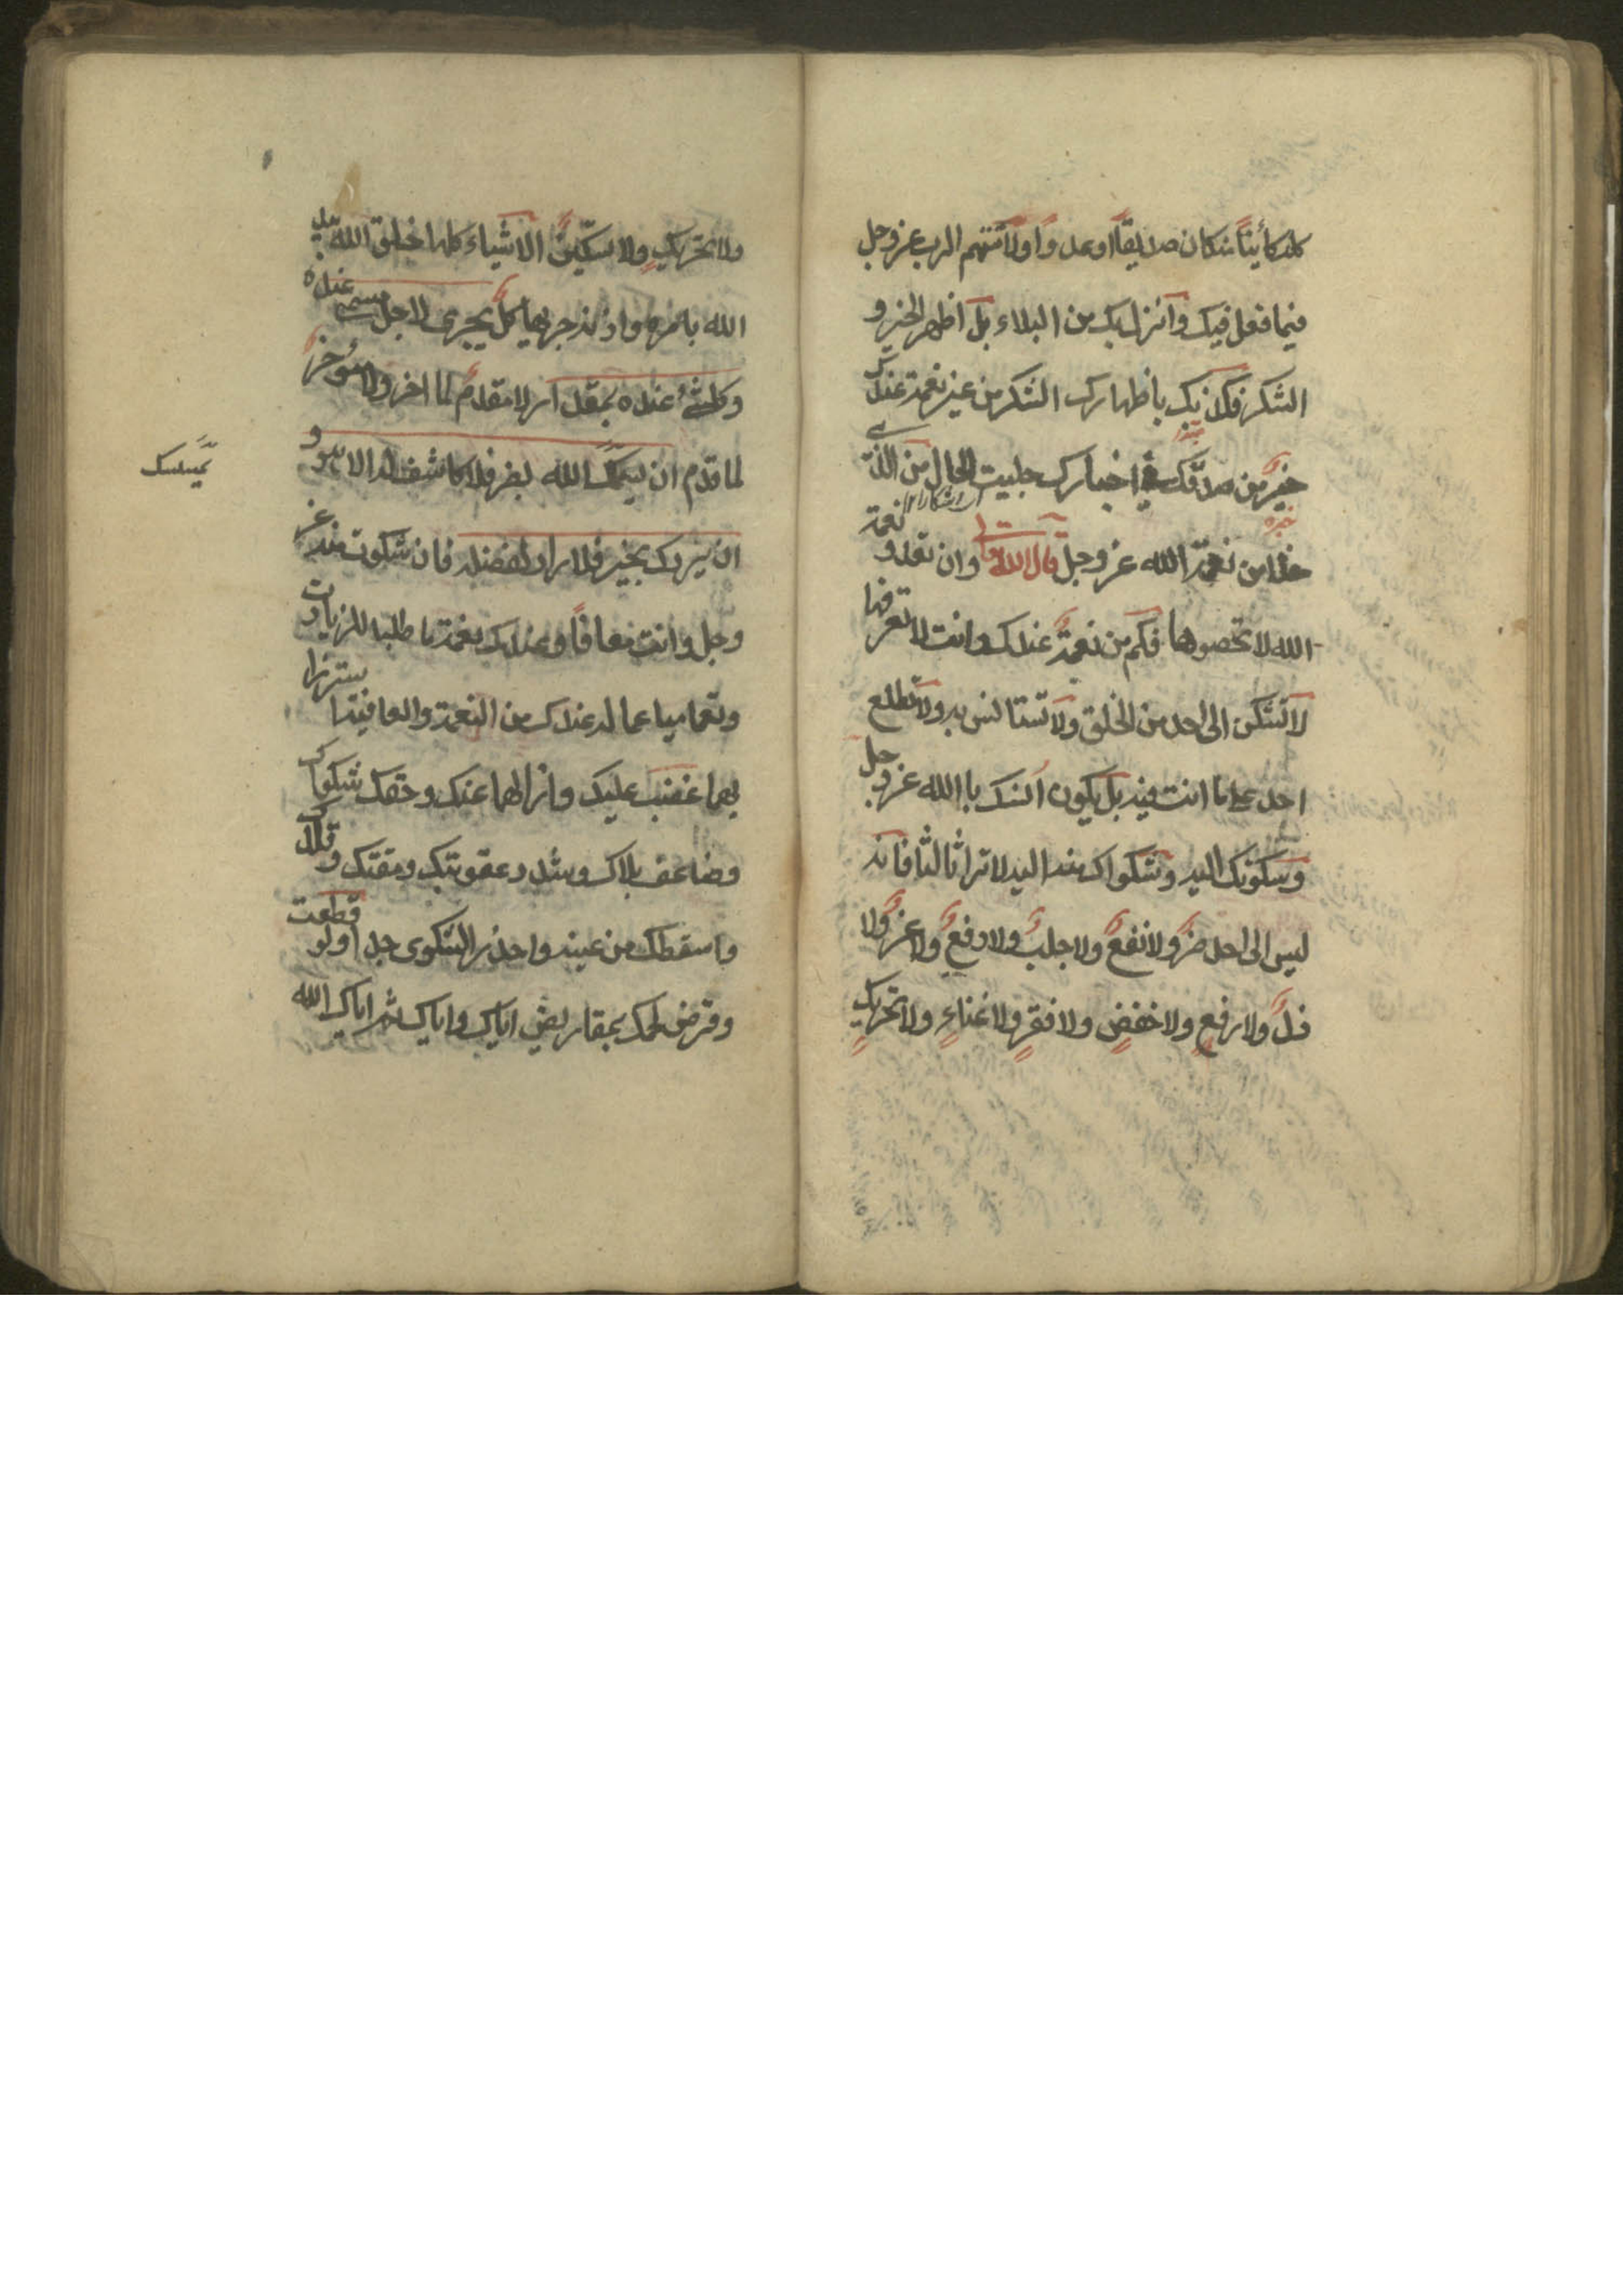 كائنا من كان صديقا او عدوا ولا تتهم الرب عز وجل
فيما فعل فيك وانزل بك من البلاء بل اظهر الخير و
الشكر فكذبك باظهارك الشكر من غير نعمة عندك
خير من صدقك في اخبارك جلية الحال من الذي
خلا من نعمة الله عز وجل قال الله تعالى وان تعدوا نعمة
الله لا تحصوها فكم من نعمة عندك وانت لا تعرفها
لا تسكن الى احد من الخلق ولا تستانس به ولا تطلع
احد على ما انت فيه بل يكون انسك باالله عز وجل
وسكونك اليه وشكواك منه اليه لا تر ثالثا فانه
ليس الى احد ضر ولا نفع ولا جلب ولا دفع ولا عز ولا
ذل ولا رفع ولا خفض ولا فقر ولا غناء ولا تحريك
ولا تحريك ولا تسكين الاشياء كلها خلق الله بيد
الله بامره واذنه جريها كل يجرى لاجل مسمى عنده
وكل شئ عنده بمقدار لا مقدم لما اخر ولا مؤخر
لما قدم ان يمسك الله بضر فلا كاشف له الا هو و
ان يردك بخير فلا راد لفضله فان شكوت منه عز
وجل وانت معافا وعندك نعمة ما طلبا للزيادة
وتعاميا عما له عندك من النعمة والعافية استزرا
بهما غضب عليك وازالهما عنك وحقق شكواك
وضاعف بلاك وشدد عقوبتك ومقتك وقلاك
واسقطك من عينه واحذر الشكوى جدا ولو قطعت
وقرض لحمك بمقاريض اياك واياك ثم اياك الله
يمسسك